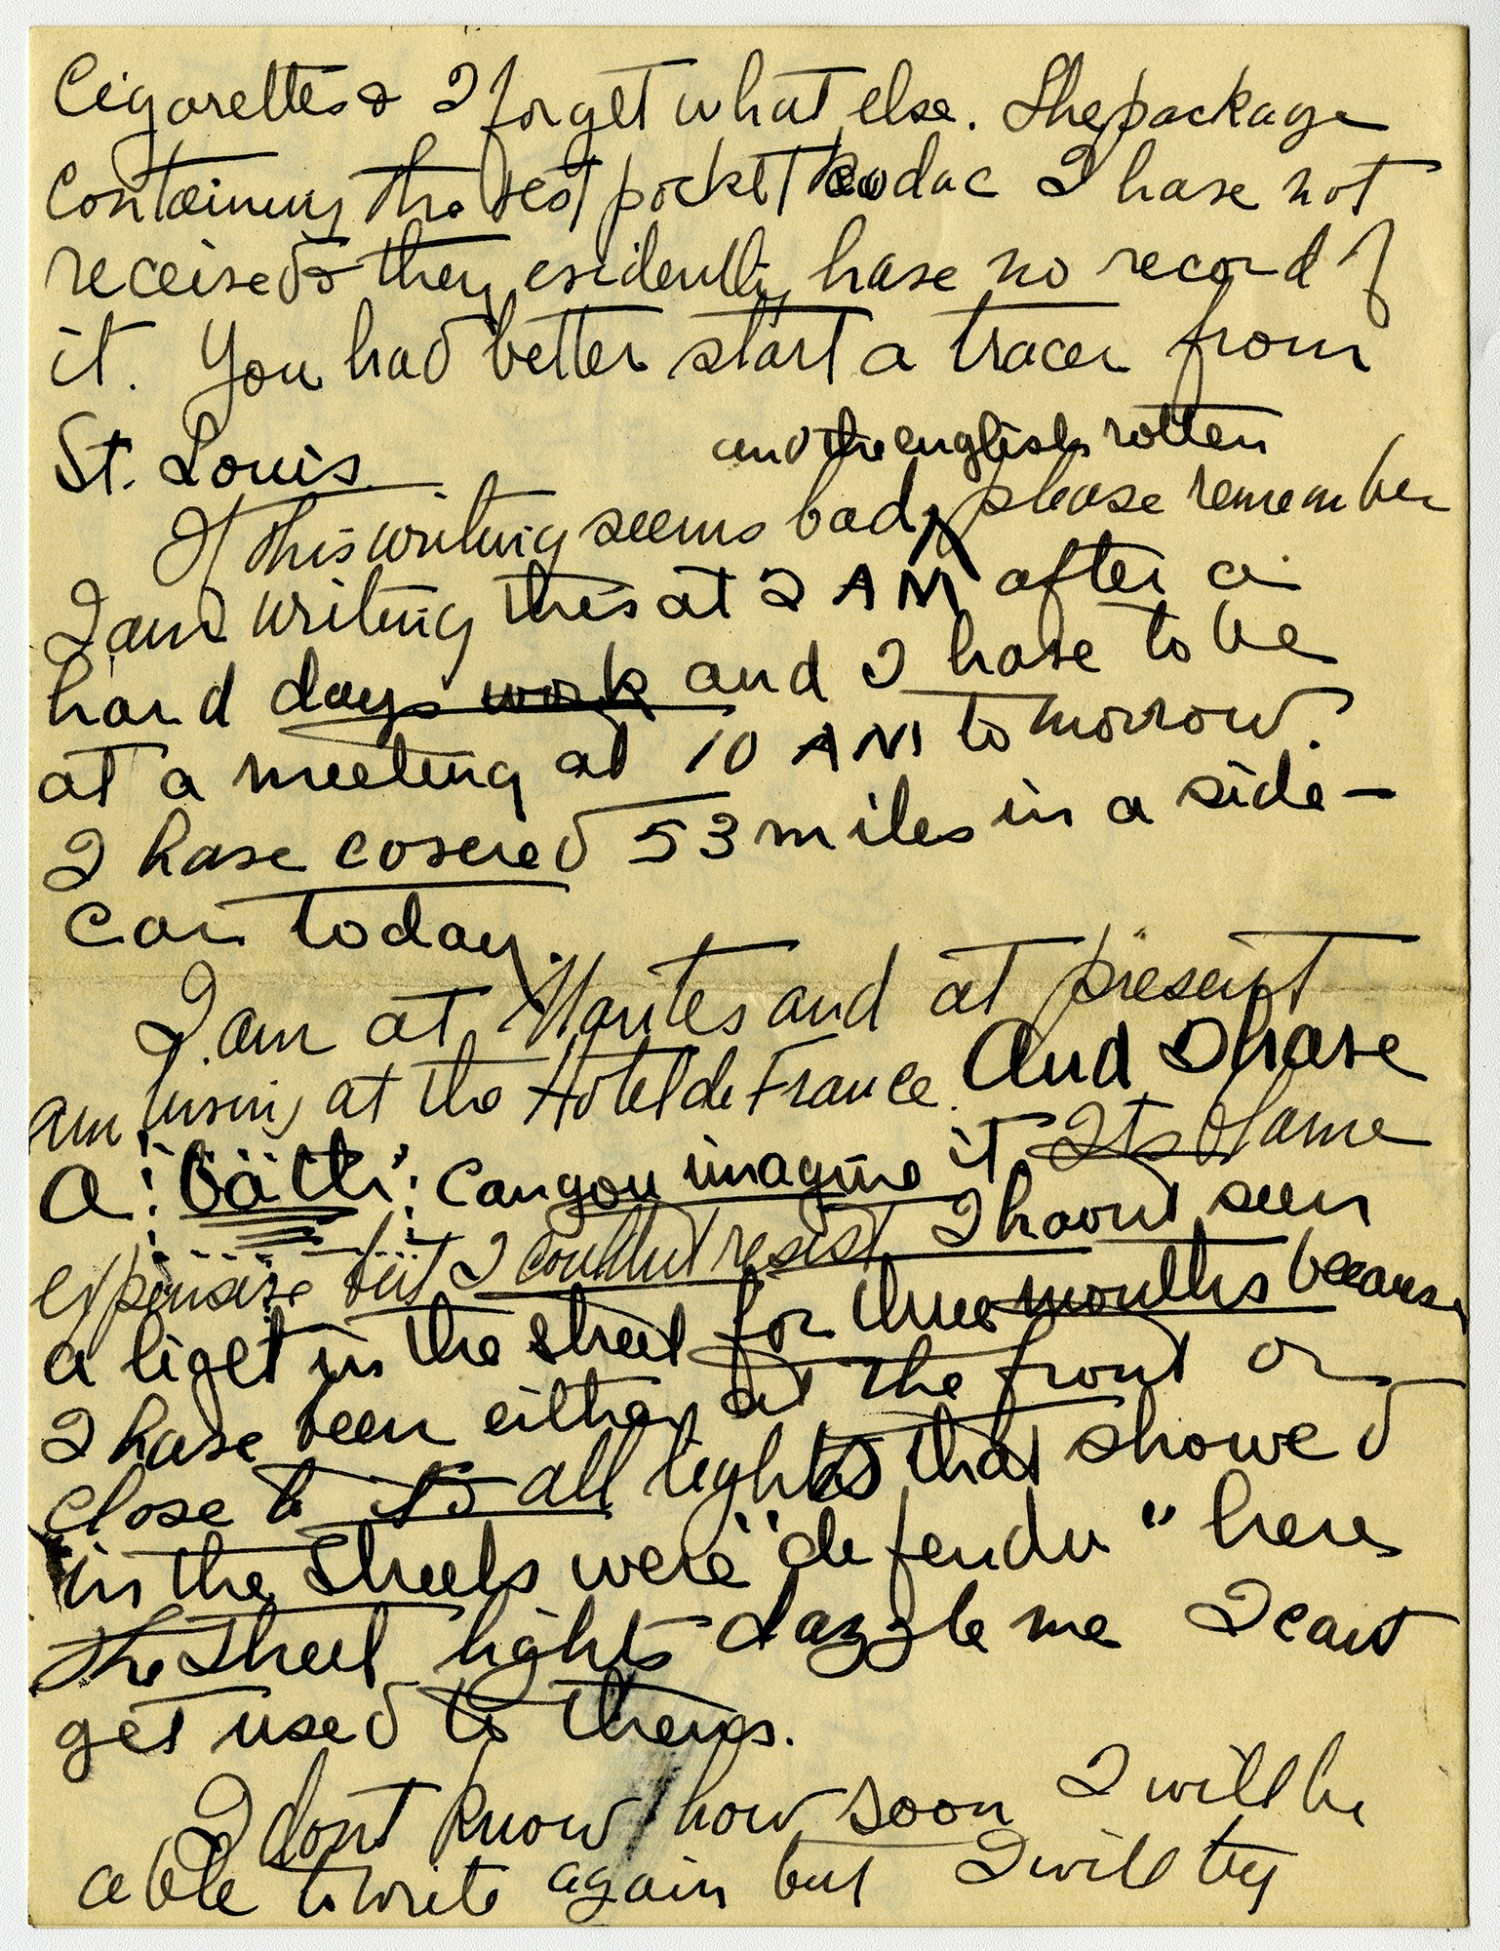 Cigarettes & I forget what else. The package
containing the vest pocket kodac I have not
received & they evidently have no record of
it. You had better start a tracer from
St. Louis.
and the english rotten
If this writing seems bad, please remember
I am writing this at 2 AM after a
hard days work and I have to be
at a meeting at 10 AM tomorrow.
I have covered 53 miles in a side-
car today.
I am at Nantes and at present
am living at the Hotel de France. And I have
a "bath". Can you imagine it. Its
expensive but I couldnt resist I havnt seen
a light in the street for three months because
I have been either at the front or
close to it & all lights that showed
in the streets were "defendu" here
the street lights dazzle me I cant
get used to them.
I dont know how soon I will be
able to write again but I will try